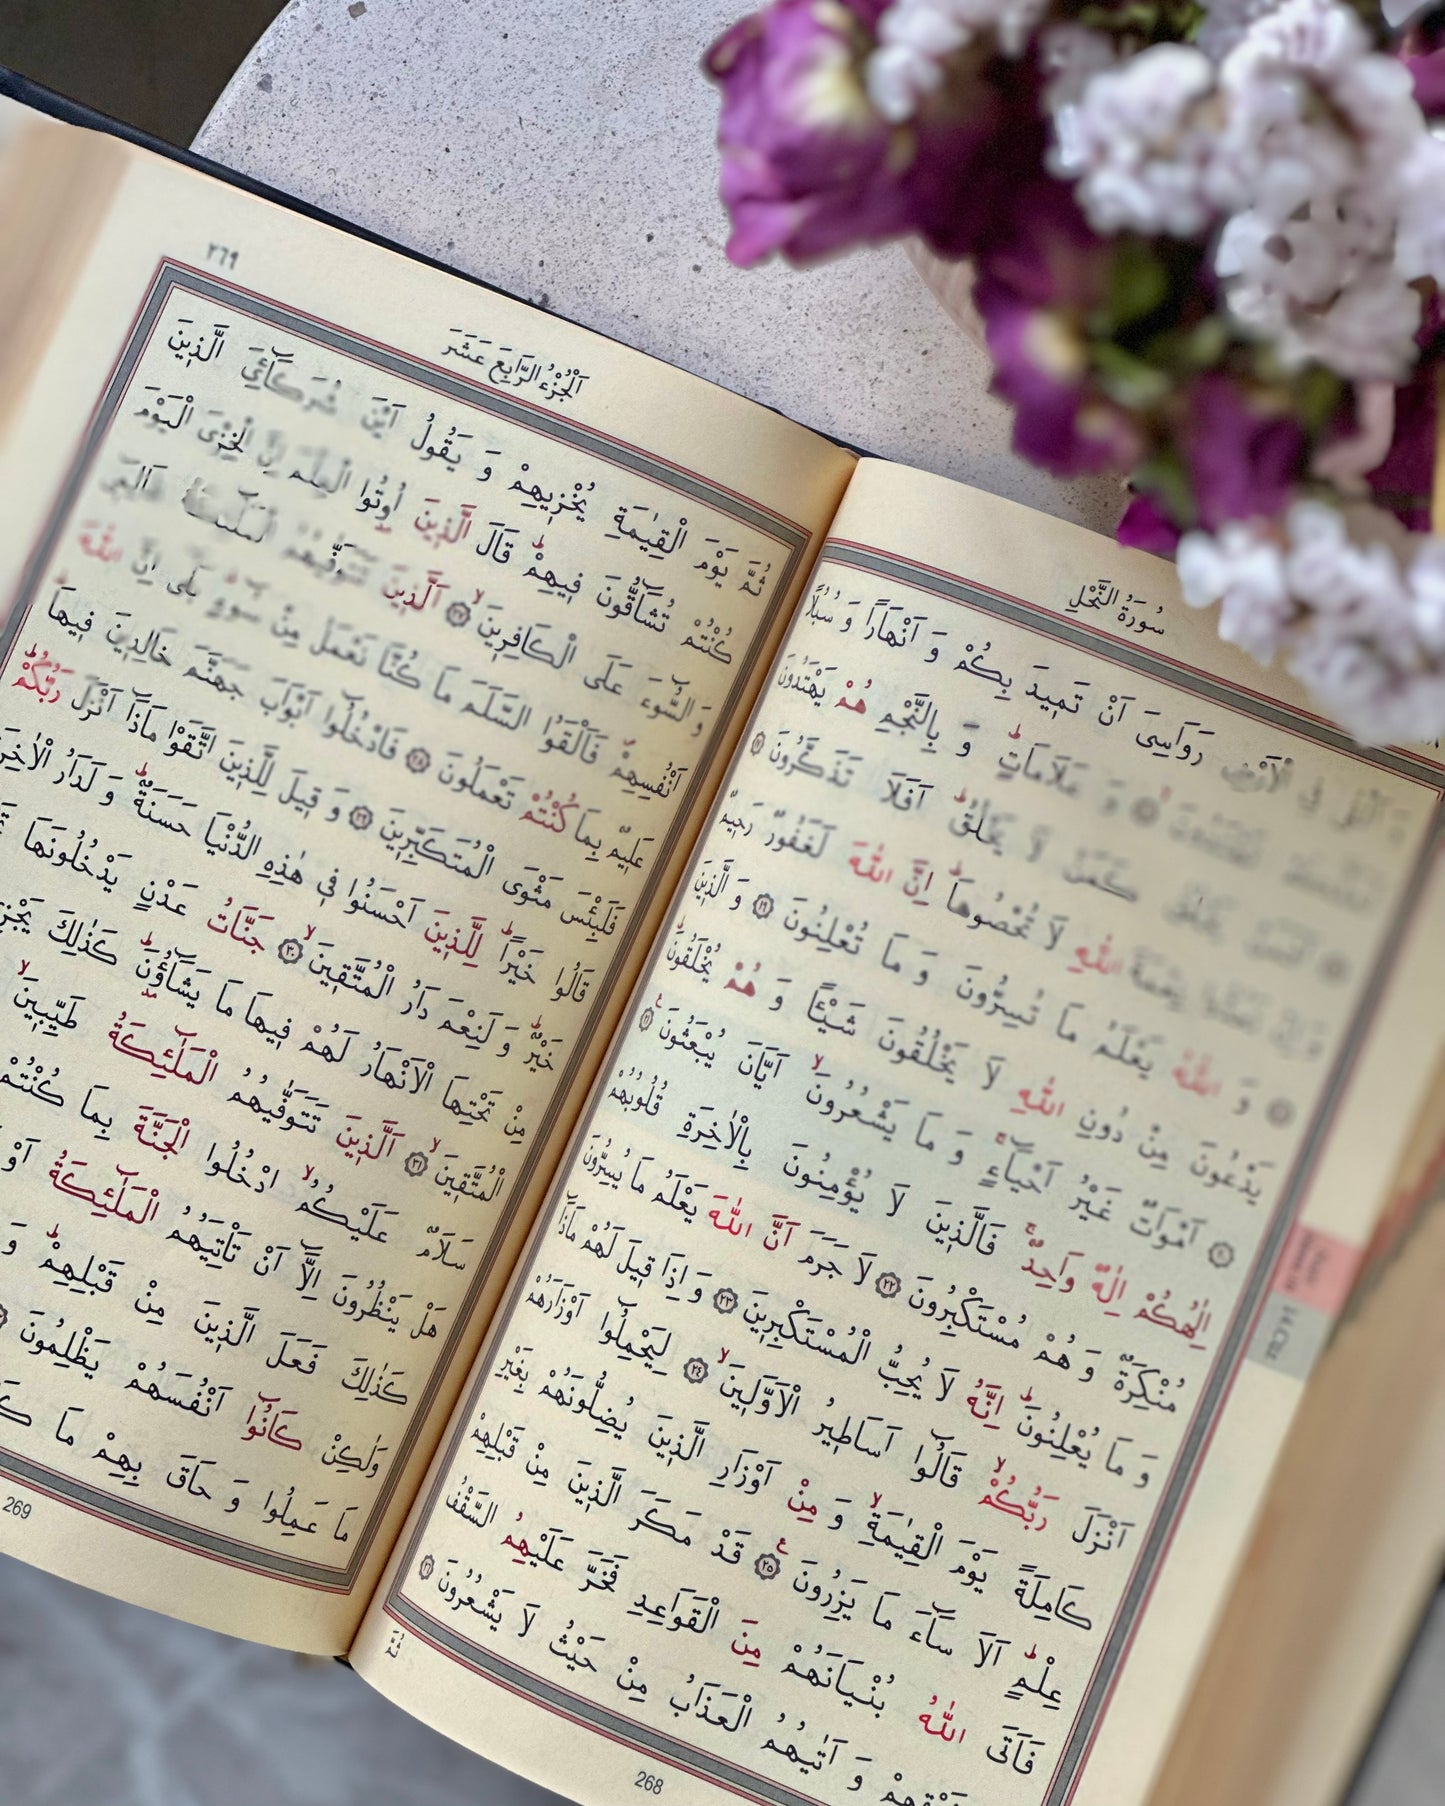 سُورَةُ النَّحْلِ
فِى الْاَرْضِ رَوَاسِىَ اَنْ تَمِيدَ بِكُمْ وَ اَنْهَاراً وَ سُبُلًا
وَ عَلَامَاتٍ وَ بِالنَّجْمِ هُمْ يَهْتَدُونَ
كَمَنْ لَا يَخْلُقُ اَفَلَا تَذَكَّرُونَ ﴿١٧﴾
اللّٰهِ لَا تُحْصُوهَا اِنَّ اللّٰهَ لَغَفُورٌ رَحِيمٌ
وَ اللّٰهُ يَعْلَمُ مَا تُسِرُّونَ وَ مَا تُعْلِنُونَ ﴿١٩﴾ وَ الَّذِينَ
يَدْعُونَ مِنْ دُونِ اللّٰهِ لَا يَخْلُقُونَ شَيْئًا وَ هُمْ يُخْلَقُونَ
﴿٢٠﴾ اَمْوَاتٌ غَيْرُ اَحْيَآءٍ وَ مَا يَشْعُرُونَ اَيَّانَ يُبْعَثُونَ ﴿٢١﴾
اِلٰهُكُمْ اِلٰهٌ وَاحِدٌ فَالَّذِينَ لَا يُؤْمِنُونَ بِالْاٰخِرَةِ قُلُوبُهُمْ
مُنْكِرَةٌ وَ هُمْ مُسْتَكْبِرُونَ ﴿٢٢﴾ لَا جَرَمَ اَنَّ اللّٰهَ يَعْلَمُ مَا يُسِرُّونَ
وَ مَا يُعْلِنُونَ اِنَّهُ لَا يُحِبُّ الْمُسْتَكْبِرِينَ ﴿٢٣﴾ وَ اِذَا قِيلَ لَهُمْ مَاذَٓا
اَنْزَلَ رَبُّكُمْ قَالُٓوا اَسَاطِيرُ الْاَوَّلِينَ ﴿٢٤﴾ لِيَحْمِلُٓوا اَوْزَارَهُمْ
كَامِلَةً يَوْمَ الْقِيٰمَةِ وَ مِنْ اَوْزَارِ الَّذِينَ يُضِلُّونَهُمْ بِغَيْرِ
عِلْمٍ اَلَا سَآءَ مَا يَزِرُونَ ﴿٢٥﴾ قَدْ مَكَرَ الَّذِينَ مِنْ قَبْلِهِمْ
فَاَتَى اللّٰهُ بُنْيَانَهُمْ مِنَ الْقَوَاعِدِ فَخَرَّ عَلَيْهِمُ السَّقْفُ
وَ اَتٰيهُمُ الْعَذَابُ مِنْ حَيْثُ لَا يَشْعُرُونَ ﴿٢٦﴾
ثُمَّ
268
٢٦٩
اَلْجُزْءُ الرَّابِعَ عَشَرَ
ثُمَّ يَوْمَ الْقِيٰمَةِ يُخْزِيهِمْ وَ يَقُولُ اَيْنَ شُرَكَآئِىَ الَّذِينَ
كُنْتُمْ تُشَآقُّونَ فِيهِمْ قَالَ الَّذِينَ اُوتُوا الْعِلْمَ اِنَّ الْخِزْىَ الْيَوْمَ
وَ السُّٓوءَ عَلَى الْكَافِرِينَ ﴿٢٧﴾ اَلَّذِينَ تَتَوَفّٰيهُمُ
اَنْفُسِهِمْ فَاَلْقَوُا السَّلَمَ مَا كُنَّا نَعْمَلُ مِنْ سُٓوءٍ بَلٰى اِنَّ اللّٰهَ
عَلِيمٌ بِمَا كُنْتُمْ تَعْمَلُونَ ﴿٢٨﴾ فَادْخُلُٓوا اَبْوَابَ جَهَنَّمَ خَالِدِينَ فِيهَا
فَلَبِئْسَ مَثْوَى الْمُتَكَبِّرِينَ ﴿٢٩﴾ وَ قِيلَ لِلَّذِينَ اتَّقَوْا مَاذَٓا اَنْزَلَ رَبُّكُمْ
قَالُوا خَيْرًا لِلَّذِينَ اَحْسَنُوا فِى هٰذِهِ الدُّنْيَا حَسَنَةٌ وَ لَدَارُ الْاٰخِرَةِ
خَيْرٌ وَ لَنِعْمَ دَارُ الْمُتَّقِينَ ﴿٣٠﴾ جَنَّاتُ عَدْنٍ يَدْخُلُونَهَا
مِنْ تَحْتِهَا الْاَنْهَارُ لَهُمْ فِيهَا مَا يَشَآؤُنَ كَذٰلِكَ
الْمُتَّقِينَ ﴿٣١﴾ اَلَّذِينَ تَتَوَفّٰيهُمُ الْمَلٰٓئِكَةُ طَيِّبِينَ
سَلَامٌ عَلَيْكُمُ ادْخُلُوا الْجَنَّةَ بِمَا كُنْتُمْ
هَلْ يَنْظُرُونَ اِلَّٓا اَنْ تَاْتِيَهُمُ الْمَلٰٓئِكَةُ اَوْ
كَذٰلِكَ فَعَلَ الَّذِينَ مِنْ قَبْلِهِمْ وَ
وَلٰكِنْ كَانُٓوا اَنْفُسَهُمْ يَظْلِمُونَ
مَا عَمِلُوا وَ حَاقَ بِهِمْ مَا
269